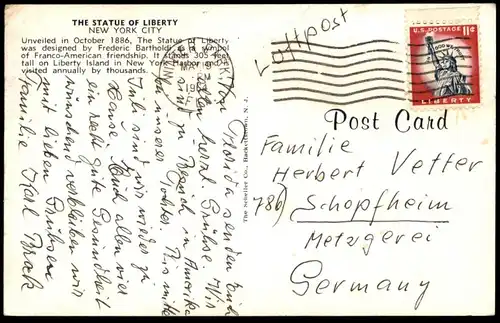 THE STATUE OF LIBERTY
NEW YORK CITY
Unveiled in October 1886, The Statue of Liberty
was designed by Frederic Bartholdi as a symbol
of Franco-American friendship. It stands 305 feet
tall on Liberty Island in New York Harbor and is
visited annually by thousands.
Luftpost
U.S. POSTAGE 11¢
IN GOD WE TRUST
LIBERTY
Post Card
The Scheller Co., Hackettstown, N. J.
Familie
Herbert Vetter
786) Schopfheim
Metzgerei
Germany
Von Florida senden Euch
herzl. Grüße. Wir
sind zu Besuch in Amerika
bei unserer Tochter. Bis mitte
Juli sind wir wieder zu
Hause. Euch allen viel
ein recht gute Gesundheit
wünschend verbleiben wir
mit lieben Grüßen
Familie Karl